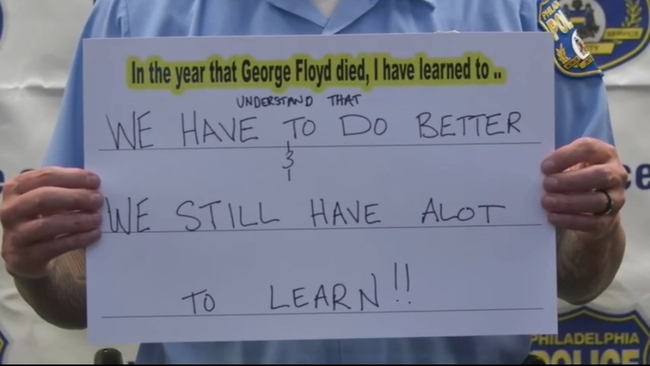 In the year that George Floyd died, I have learned to ..
UNDERSTAND THAT
WE HAVE TO DO BETTER
&
WE STILL HAVE ALOT
TO LEARN!!
PHILADELPHIA
POLICE